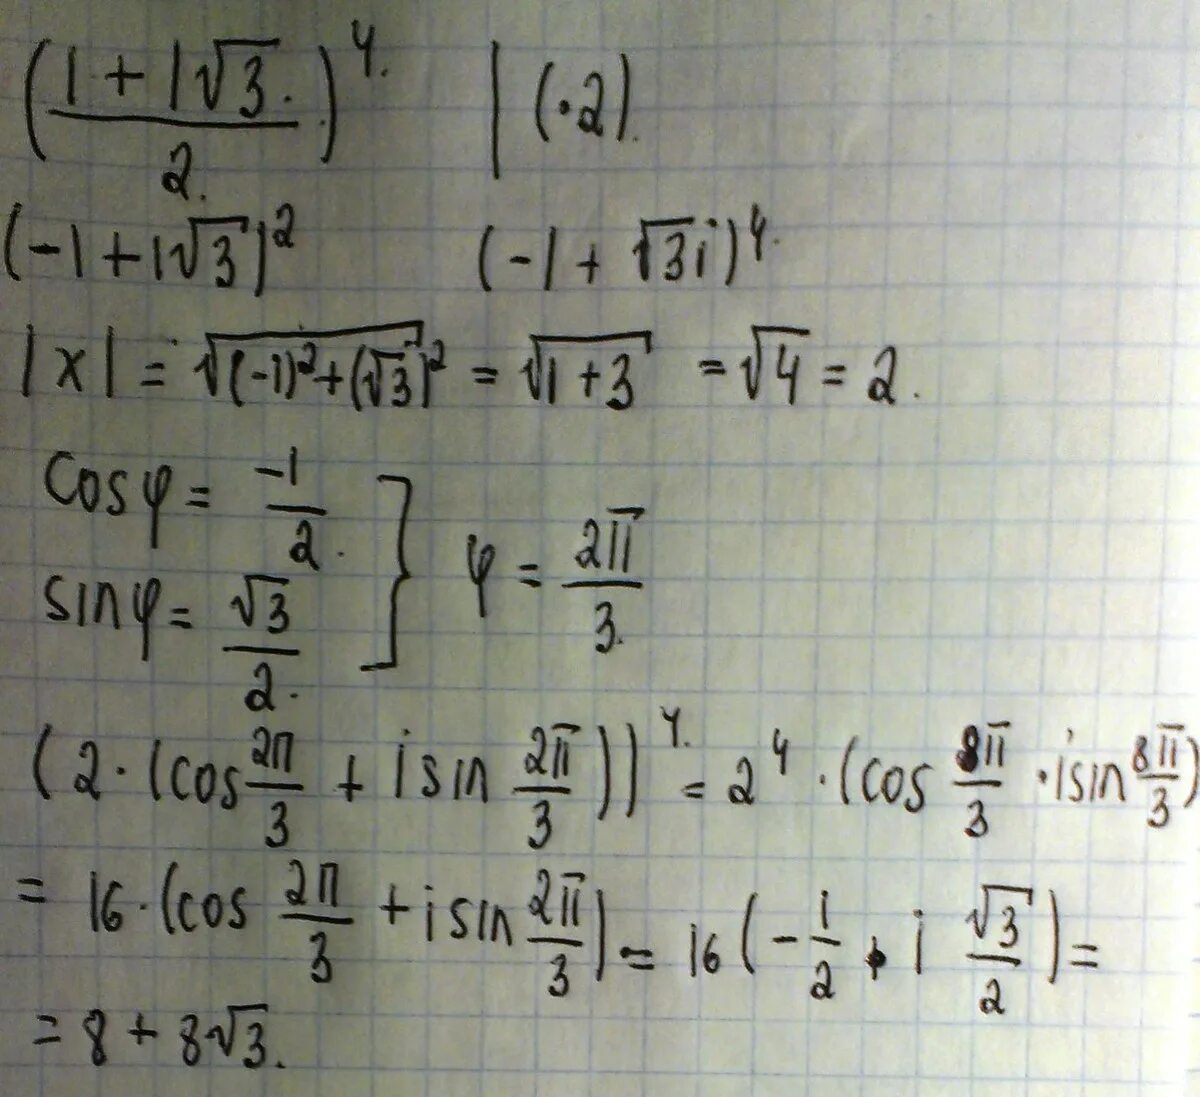 (1 + 1√3 / 2)^4 | (·2)
(-1 + 1√3)^2 (-1 + √3i)^4
|x| = √((-1)^2 + (√3)^2) = √(1 + 3) = √4 = 2.
cosφ = -1/2
sinφ = √3/2 } φ = 2π/3
(2·(cos 2π/3 + i sin 2π/3))^4 = 2^4 · (cos 8π/3 · i sin 8π/3)
= 16·(cos 2π/3 + i sin 2π/3) = 16(-1/2 + i √3/2) =
= 8 + 8√3.